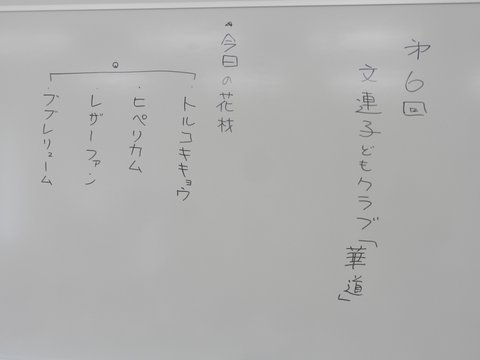 第6回
文連子どもクラブ「華道」
・今日の花材
・トルコキキョウ
・ヒペリカム
・レザーファン
・ブプレリューム